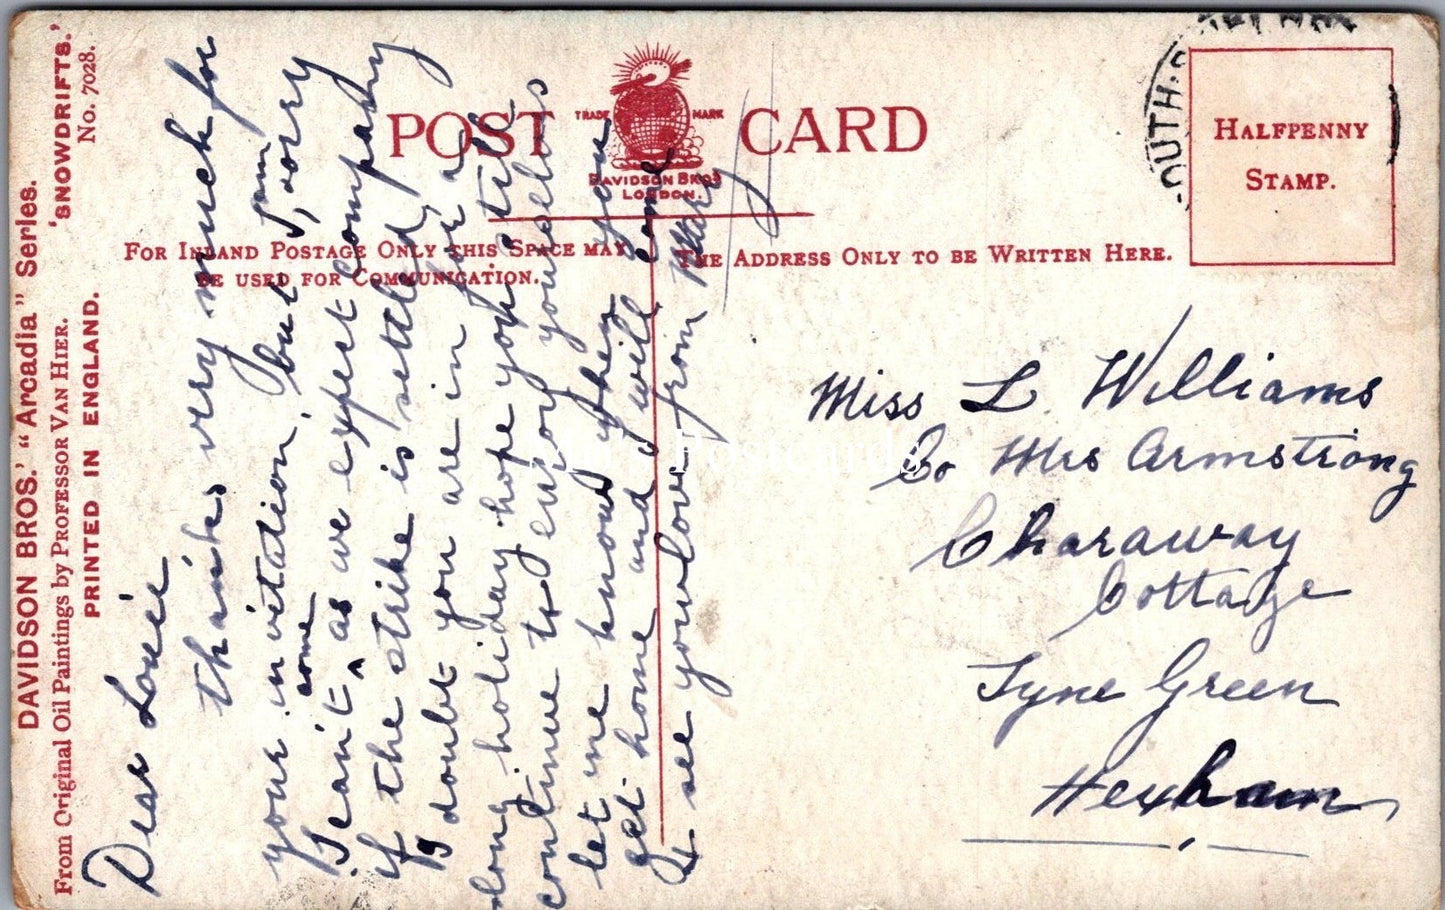 DAVIDSON BROS.' "Arcadia" Series.
'SNOWDRIFTS.'
From Original Oil Paintings by PROFESSOR VAN HIER.
No. 7028.
PRINTED IN ENGLAND.
POST CARD
TRADE MARK
DAVIDSON BROS
LONDON.
FOR INLAND POSTAGE ONLY THIS SPACE MAY
BE USED FOR COMMUNICATION.
THE ADDRESS ONLY TO BE WRITTEN HERE.
HALFPENNY
STAMP.
OUTH
Dear Lorie
thanks very much for
your invitation, but I'm sorry
I can't come as we expect company
if the strike is settled,
I doubt you are in for a
long holiday hope you still
continue to enjoy yourselves
let me know when you
get home and I will come
& see you love from Mary
Miss L. Williams
Co Mrs Armstrong
Charaway
Cottage
Tyne Green
Hexham